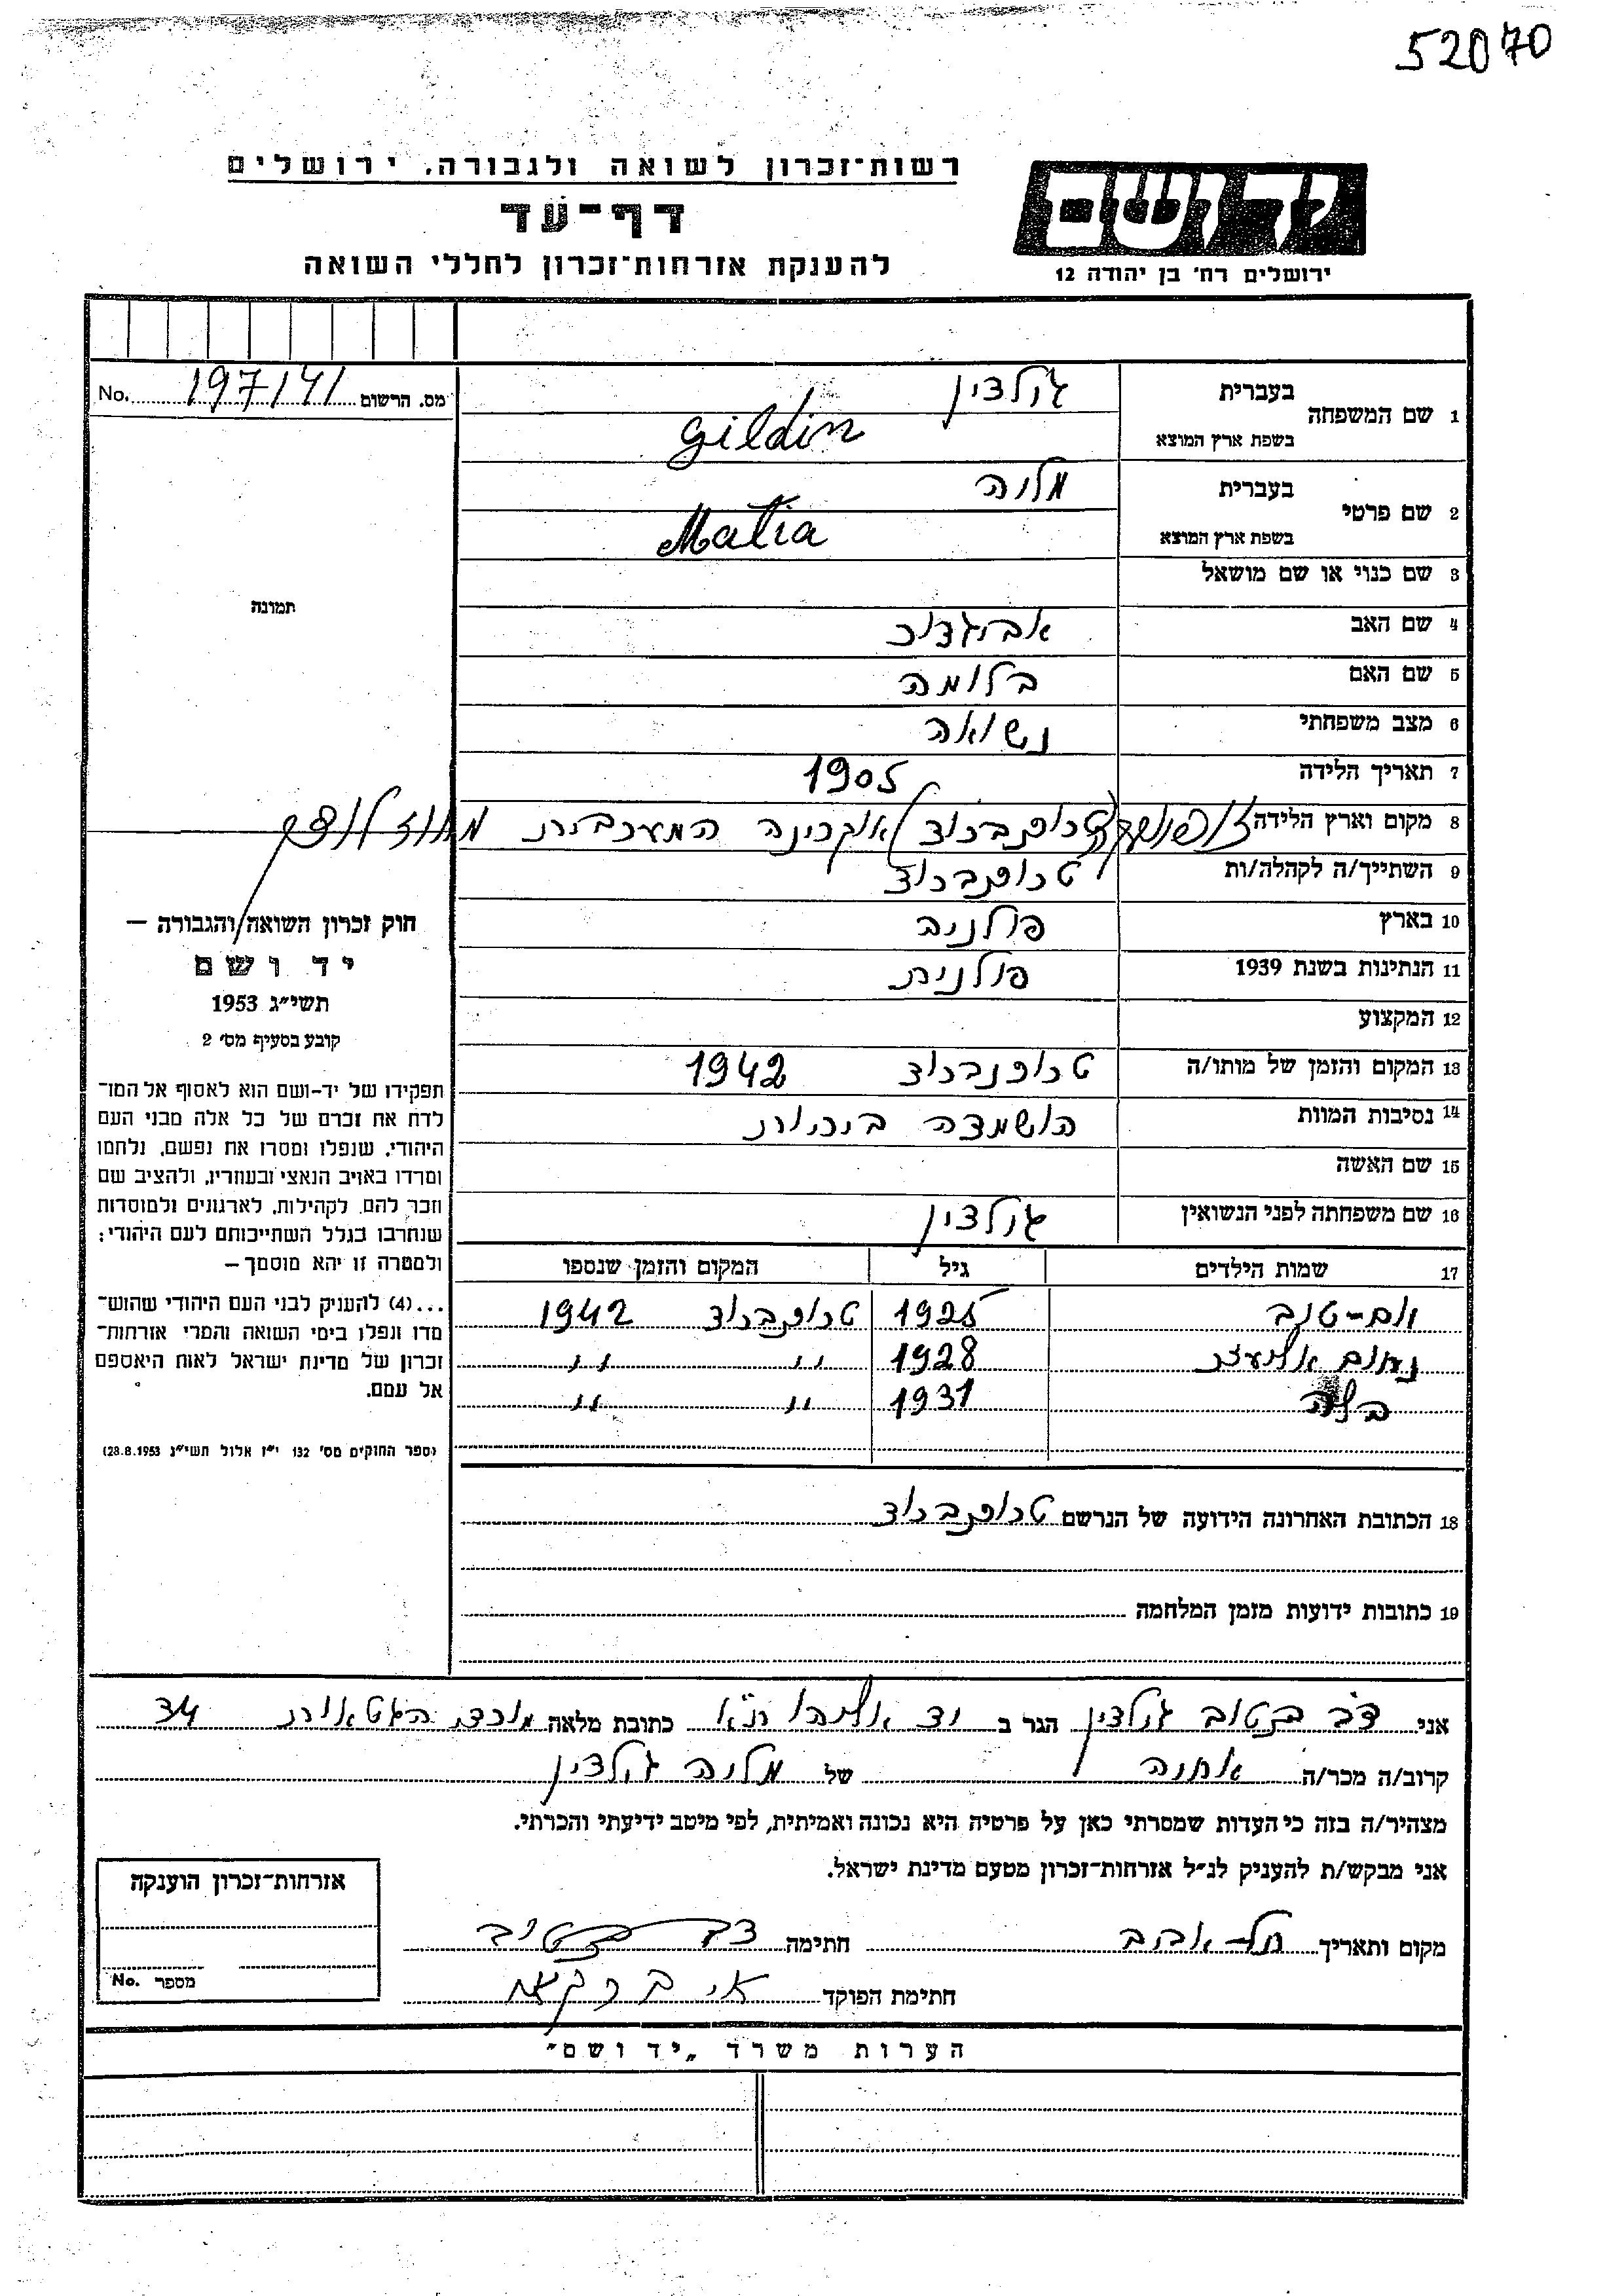 52070
יד ושם
ירושלים רח׳ בן יהודה 12
רשות־זכרון לשואה ולגבורה. ירושלים
דף־עד
להענקת אזרחות־זכרון לחללי השואה
מס. הרשום 197/41 No.
1 שם המשפחה
בעברית גילדין
בשפת ארץ המוצא Gildin
2 שם פרטי
בעברית
בשפת ארץ המוצא
3 שם כנוי או שם מושאל
4 שם האב אביגדור
5 שם האם בלומה
6 מצב משפחתי נשואה
7 תאריך הלידה 1905
8 מקום וארץ הלידה טרופנברוד אוקרינה המערבית מחוז לוצק
9 השתייך/ה לקהלה/ות טרופנברוד
10 בארץ פולניה
11 הנתינות בשנת 1939 פולנית
12 המקצוע
13 המקום והזמן של מותו/ה טרופנברוד 1942
14 נסיבות המוות הושמדה ביריות
15 שם האשה
16 שם משפחתה לפני הנשואין גילדין
17 שמות הילדים גיל המקום והזמן שנספו
שם-טוב 1925 טרופנברוד 1942
נחום אליעזר 1928 ״ ״
1931 ״ ״
18 הכתובת האחרונה הידועה של הנרשם טרופנברוד
19 כתובות ידועות מזמן המלחמה
תמונה
חוק זכרון השואה והגבורה —
יד ושם
תשי״ג 1953
קובע בסעיף מס׳ 2
תפקידו של יד-ושם הוא לאסוף אל המו־
לדת את זכרם של כל אלה מבני העם
היהודי, שנפלו ומסרו את נפשם, נלחמו
ומרדו באויב הנאצי ובעוזריו, ולהציב שם
וזכר להם, לקהילות, לארגונים ולמוסדות
שנחרבו בגלל השתייכותם לעם היהודי;
ולמטרה זו יהא מוסמך —
...(4) להעניק לבני העם היהודי שהוש־
מדו ונפלו בימי השואה והמרי אזרחות־
זכרון של מדינת ישראל לאות היאספם
אל עמם.
(ספר החוקים מס׳ 132 י״ז אלול תשי״ג 28.8.1953)
אני דב גילדין הגר ב יד אליהו ת״א כתובת מלאה מורדי הגטאות 34
קרוב/ה מכר/ה של גילדין
מצהיר/ה בזה כי העדות שמסרתי כאן על פרטיה היא נכונה ואמיתית, לפי מיטב ידיעתי והכרתי.
אני מבקש/ת להעניק לנ״ל אזרחות־זכרון מטעם מדינת ישראל.
מקום ותאריך תל-אביב חתימה
חתימת הפוקד
אזרחות־זכרון הוענקה
מספר No.
הערות משרד „יד ושם״